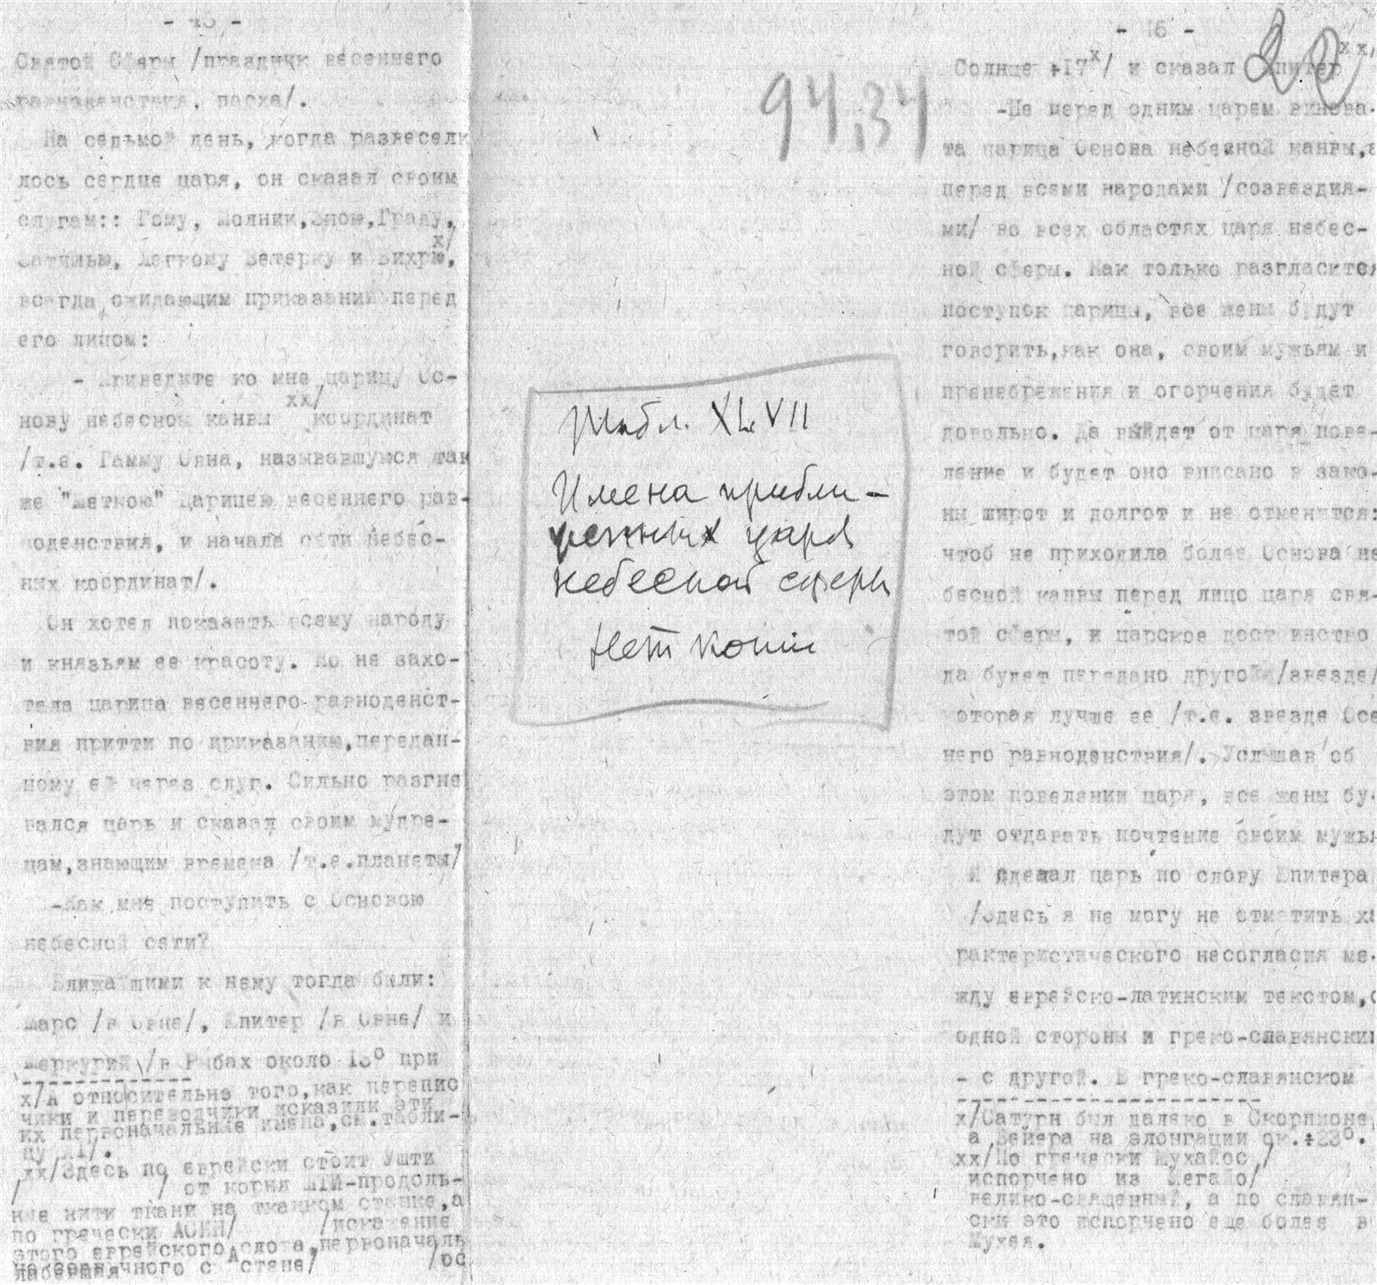 Святой Сферы /праздник весеннего
равноденствия, пасха/.
На седьмой день, когда развесели
лось сердце царя, он сказал своим
слугам:: Грому, Молнии, Зною, Граду,
Затишью, Легкому Ветерку и Вихрю, х/
всегда ожидающим приказаний перед
его лицом:
- Приведите ко мне царицу Ос-
нову небесной канвы xx/ координат
/т.е. Гамму Овна, называвшуюся так
же "меткою" Царицею весеннего рав-
ноденствия, и начала сети небес-
ных координат/.
Он хотел показать всему народу
и князьям ее красоту. Но не захо-
тела царица весеннего равноденст-
вия притти по приказанию, передан-
ному ей через слуг. Сильно разгне
вался царь и сказал своим мудре-
цам, знающим времена /т.е. планеты/
-Как мне поступить с Основою
небесной сети?
Ближайшими к нему тогда были:
Марс /в Овне/, Юпитер /в Овне/ и
Меркурий /в Рыбах около 13° при
х/А относительно того, как перепис
чики и переводчики исказили эти
их первоначальные имена, см. табли-
цу
xx/Здесь по еврейски стоит Ушти
/ / от корня ШТИ-продоль-
ные нити ткани на ткацком станке, а
по гречески АСТИН/ /искажение
этого еврейского слова, первоначаль
стене/ /ос
94,34
Табл. XLVII
Имена прибли-
женных царя
небесной сферы
Нет копии
- 46 -
22
Солнце +17х/ и сказал Юпитер xx/
-Не перед одним царем винова-
та царица Основа небесной канвы,
перед всеми народами /созвездия-
ми/ во всех областях царя небес-
ной сферы. Как только разгласится
поступок царицы, все жены будут
говорить, как она, своим мужьям и
пренебрежения и огорчения будет
довольно. Да выйдет от царя пове-
ление и будет оно вписано в зако-
ны широт и долгот и не отменится:
чтоб не приходила более Основа не
бесной канвы перед лицо царя свя-
той сферы, и царское достоинство
да будет передано другой /звезде/
которая лучше ее /т.е. звезде Осе
него равноденствия/. Услышав об
этом повелении царя, все жены бу-
дут отдавать почтение своим мужья
И сделал царь по слову Юпитера
/Здесь я не могу не отметить ха
рактеристического несогласия ме-
жду еврейско-латинским текстом, с
одной стороны и греко-славянским
- с другой. В греко-славянском
х/Сатурн был далеко в Скорпионе,
а Венера на элонгации ок. +23°.
xx/По гречески Мухайос /
испорчено из Мегайо/
велико-священный, а по славян-
ски это испорчено еще более в
Мухея.